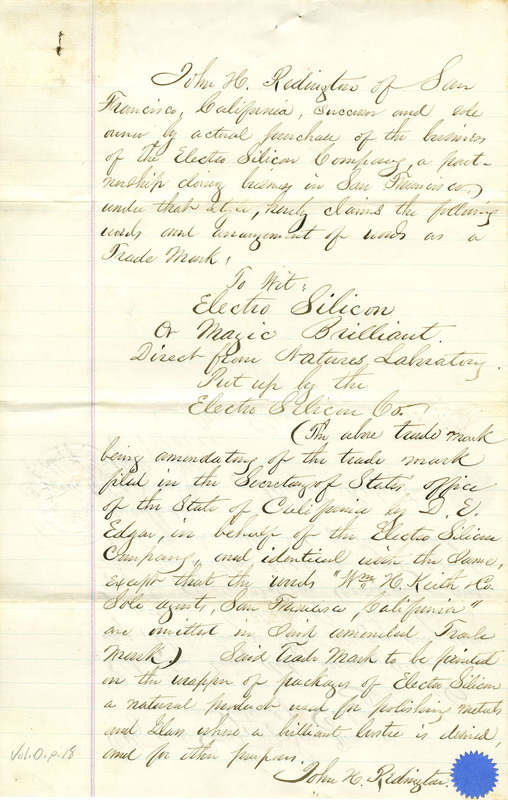 John H. Redington of San
Francisco, California, successor and sole
owner by actual purchase of the business
of the Electro Silicon Company, a part-
nership doing business in San Francisco,
under that style, hereby claims the following
words and arrangement of words as a
Trade Mark:
To Wit:
Electro Silicon
Or Magic Brilliant.
Direct from Natures Labratory.
Put up by the
Electro Silicon Co.
(The above trade mark
being amendatory of the trade mark
filed in the Secretary of States office
of the State of California by D. E.
Edgar, in behalf of the Electro Silicon
Company, and identical with the same,
except that the words "Wm. H. Keith & Co.
Sole agents, San Francisco, California"
are omitted in said amended Trade
Mark) Said Trade Mark to be printed
on the wrapper of packages of Electro Silicon
a natural product used for polishing metals
and glass where a brilliant lustre is desired,
and for other purposes.
John H. Redington.
Vol. O. p. 18